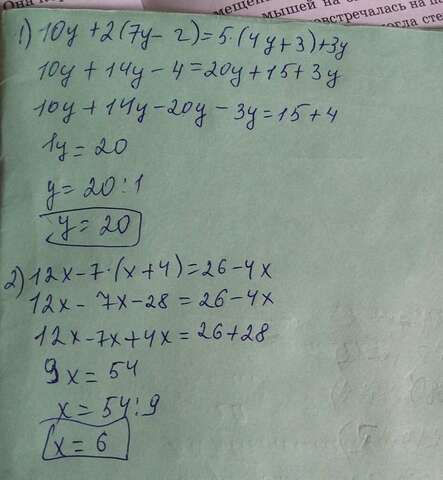 мещени
мышей на с
встречалась на п
1) 10y + 2(7y - 2) = 5·(4y + 3) + 3y
10y + 14y - 4 = 20y + 15 + 3y
10y + 14y - 20y - 3y = 15 + 4
1y = 20
y = 20 : 1
y = 20
2) 12x - 7·(x + 4) = 26 - 4x
12x - 7x - 28 = 26 - 4x
12x - 7x + 4x = 26 + 28
9x = 54
x = 54 : 9
x = 6